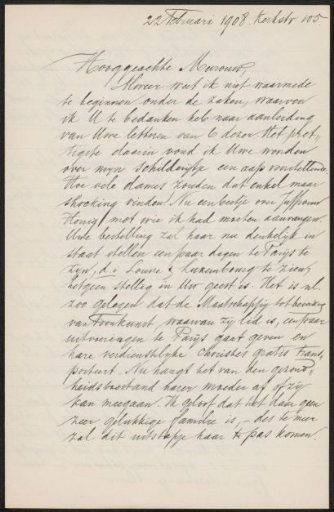 22 Februari 1908. Kerkstr 105
Hooggeachte Mevrouw,
Alweer weet ik niet waarmede
te beginnen onder de zaken, waarvoor
ik U te bedanken heb naar aanleiding
van Uwe letteren van 6 dezer. Het pret-
tigste daarin vond ik Uwe woorden
over mijn schilderijtje een aap voorstellende.
Hoe vele dames zouden dat enkel maar
shocking vinden! Nu een beetje over Juffrouw
Honig, met wie ik had moeten aanvangen.
Uwe bestelling zal haar nu denkelijk in
staat stellen een paar dagen te Parijs te
zijn, d. Louvre & Luxembourg te zien,
hetgeen stellig in Uw geest is. Het is nl.
zoo gelegen dat de Maatschappij tot bevordering
van Toonkunst, waarvan zij lid is, een paar
uitvoeringen te Parijs gaat geven en
hare verdienstelijke Choristes gratis trans-
porteert. Nu hangt het van den gezond-
heidstoestand harer moeder af of zij
kan meegaan. Ik geloof dat het daar geen
zeer gelukkige familie is, – des te meer
zal dit uitstapje haar te pas komen.